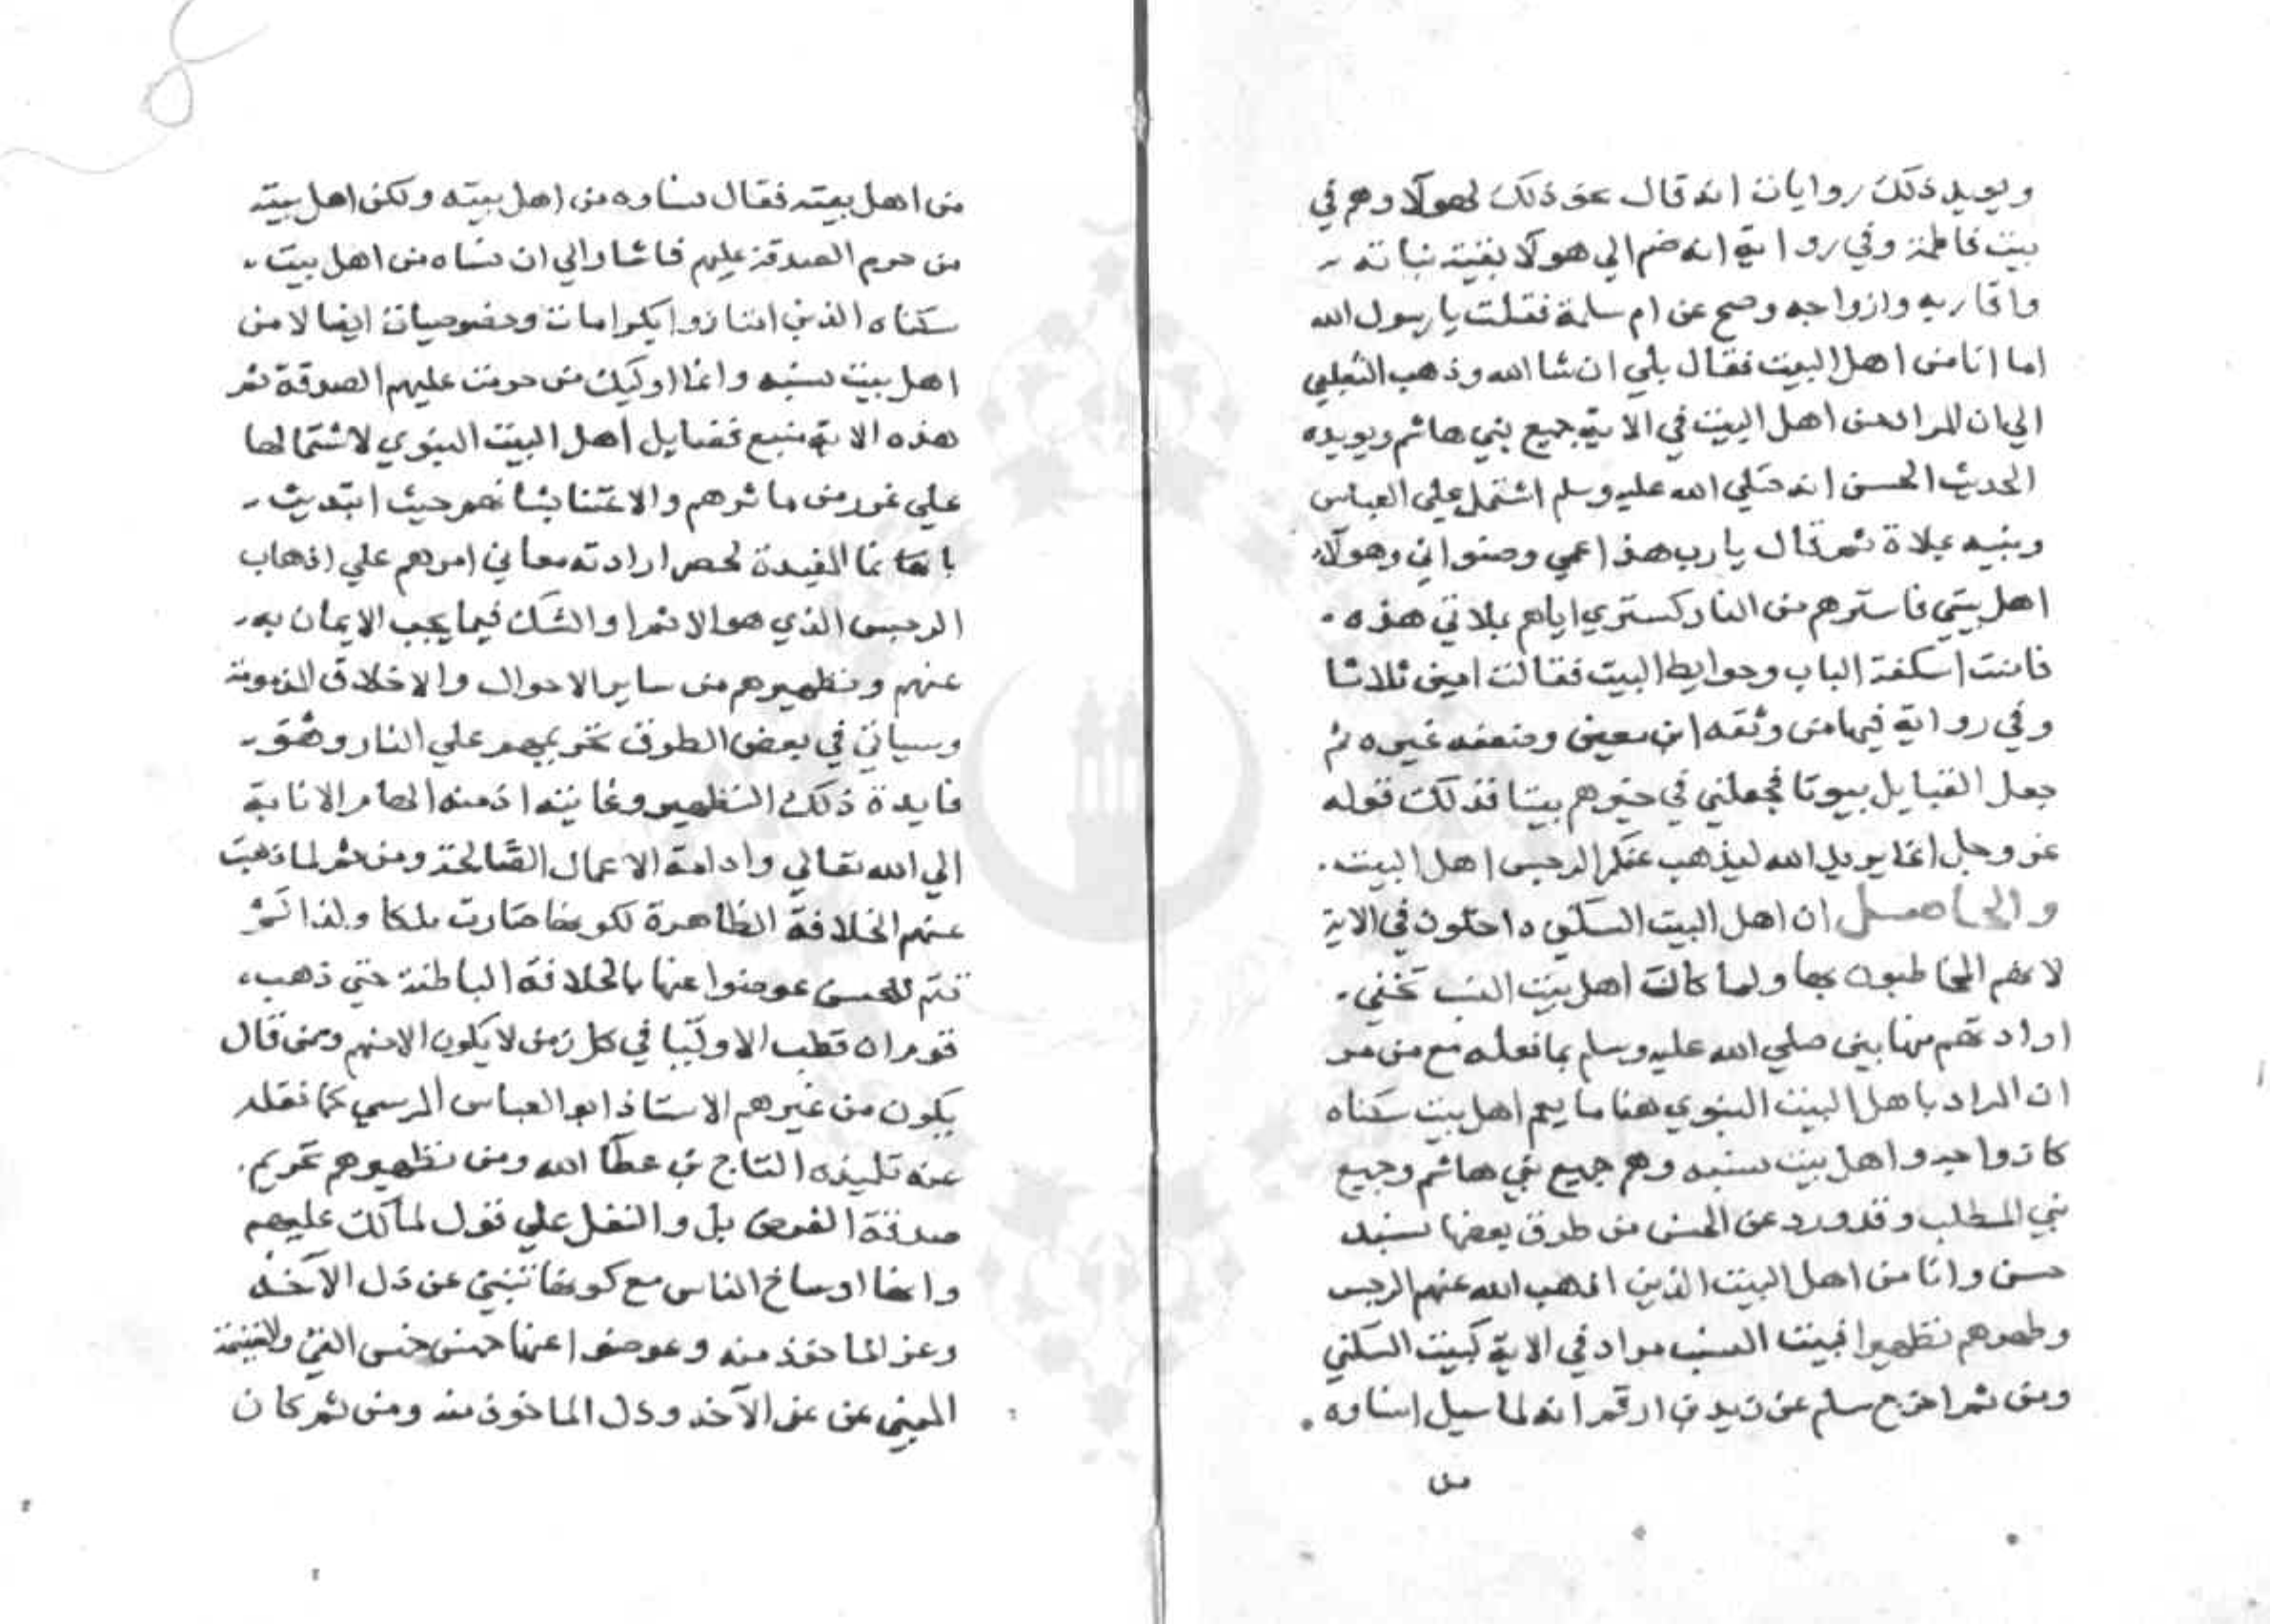 ويويد ذلك روايات انه قال نحو ذلك لهولآ وهم في
بيت فاطمة وفي رواية انه ضم الي هولآ بقية بناته
واقاربه وازواجه وصح عن ام سلمة فقلت يا رسول الله
اما انا من اهل البيت فقال بلي ان شا الله وذهب الثعلبي
الي ان المراد من اهل البيت في الاية جميع بني هاشم ويويده
الحديث الحسن انه صلي الله عليه وسلم اشتمل علي العباس
وبنيه بملاة ثم قال يا رب هذا عمي وصنو ابي وهولآء
اهل بيتي فاسترهم من النار كستري اياهم بملاتي هذه
فامنت اسكفة الباب وحوايط البيت فقالت امين ثلاثا
وفي رواية فيها من وثقه ابن معين وضعفه غيره ثم
جعل القبايل بيوتا فجعلني في خيرهم بيتا فذلك قوله
عز وجل انما يريد الله ليذهب عنكم الرجس اهل البيت
والحاصل ان اهل البيت السكني داخلون في الاية
لانهم المخاطبون بها ولما كانت اهل بيت النسب تخفي
ارادتهم منها بين صلي الله عليه وسلم بما فعله مع من مر
ان المراد باهل البيت النبوي هنا ما يعم اهل بيت سكناه
كازواجه واهل بيت نسبه وهم جميع بني هاشم وجميع
بني المطلب وقد ورد عن الحسن من طرق بعضها سنده
حسن وانا من اهل البيت الذين اذهب الله عنهم الرجس
وطهرهم تطهيرا فبيت النسب مراد في الاية كبيت السكني
ومن ثم اخرج مسلم عن زيد بن ارقم انه لما سيل انساوه
من
من اهل بيته فقال نساوه من اهل بيته ولكن اهل بيته
من حرم الصدقة عليهم فاشار الي ان نساه من اهل بيت
سكناه الذين امتازوا بكرامات وخصوصيات ايضا لا من
اهل بيت نسبه وانما اوليك من حرمت عليهم الصدقة ثم
هذه الاية منبع فضايل اهل البيت النبوي لاشتمالها
علي غرر من ماثرهم والاعتنا بشانهم حيث ابتديت
بانما المفيدة لحصر ارادته معاني امرهم علي اذهاب
الرجس الذي هو الاثم او الشك فيما يجب الايمان به
عنهم وتطهيرهم من ساير الاحوال والاخلاق المذمومة
وسياتي في بعض الطرق تحريمهم علي النار وهو
فايدة ذلك التطهير وغايته اذ منه الهام الانابة
الي الله تعالي وادامة الاعمال الصالحة ومن ثم لما ذهبت
عنهم الخلافة الظاهرة لكونها صارت ملكا ولذا لم
تتم للحسن عوضوا عنها بالخلافة الباطنة حتي ذهب
قوم ان قطب الاوليا في كل زمن لا يكون الا منهم وممن قال
يكون من غيرهم الاستاذ ابو العباس المرسي كما نقله
عنه تلميذه التاج بن عطآ الله ومن تطهيرهم تحريم
صدقة الفرض بل والنفل علي قول لمالك عليهم
وانها اوساخ الناس مع كونها تنبي عن ذل الآخذ
وعز الماخوذ منه وعوضوا عنها خمس خمس الفي والغنيمة
المبني عن عز الآخذ وذل الماخوذ منه ومن ثم كان